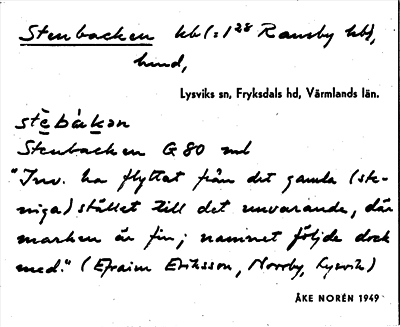 Stenbacken hb (=1²⁸ Ransby hb),
hmd,
Lysviks sn, Fryksdals hd, Värmlands län.
stèbákən
Stenbacken G 80 ml
"Inv. ha flyttat från det gamla (ste-
niga) stället till det nuvarande, där
marken är fin; namnet följde dock
med." (Efraim Eriksson, Norrby, Lysvik)
ÅKE NORÉN 1949